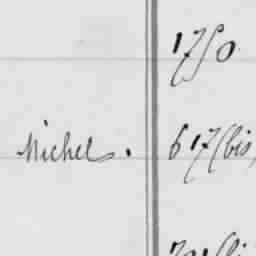 1750
Michel. 617(bis)